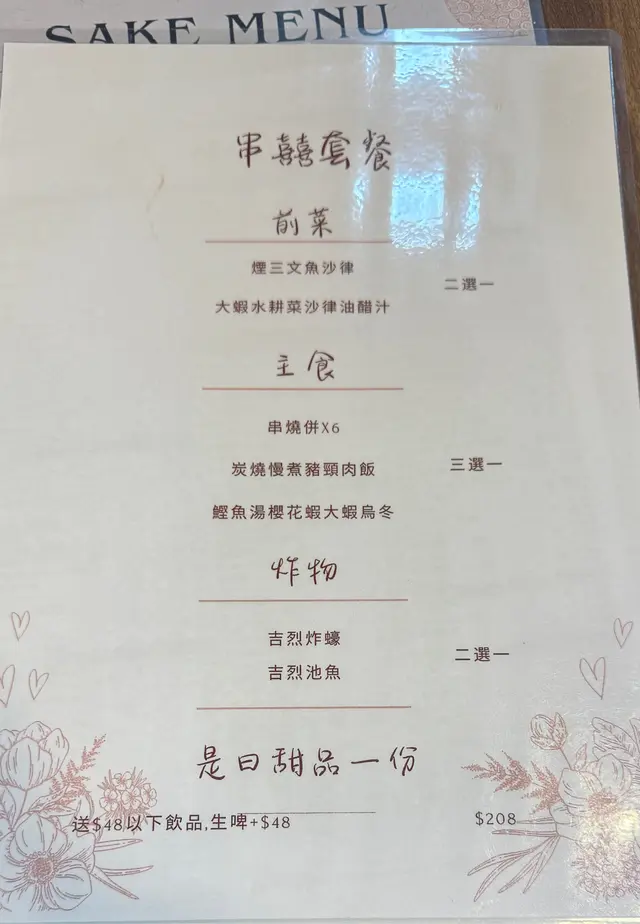 SAKE MENU
串囍套餐
前菜
煙三文魚沙律
二選一
大蝦水耕菜沙律油醋汁
主食
串燒併X6
炭燒慢煮豬頸肉飯
三選一
鰹魚湯櫻花蝦大蝦烏冬
炸物
吉烈炸蠔
二選一
吉烈池魚
是日甜品一份
送$48以下飲品,生啤+$48
$208